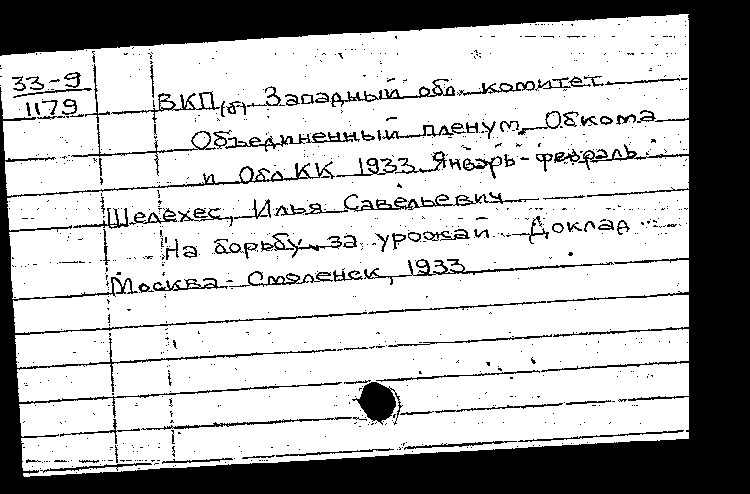 33-9
1179
ВКП(б). Западный обл. комитет.
Объединенный пленум Обкома
и Обл КК 1933. Январь-февраль.
Шелехес, Илья Савельевич
На борьбу за урожай. Доклад...
Москва-Смоленск, 1933